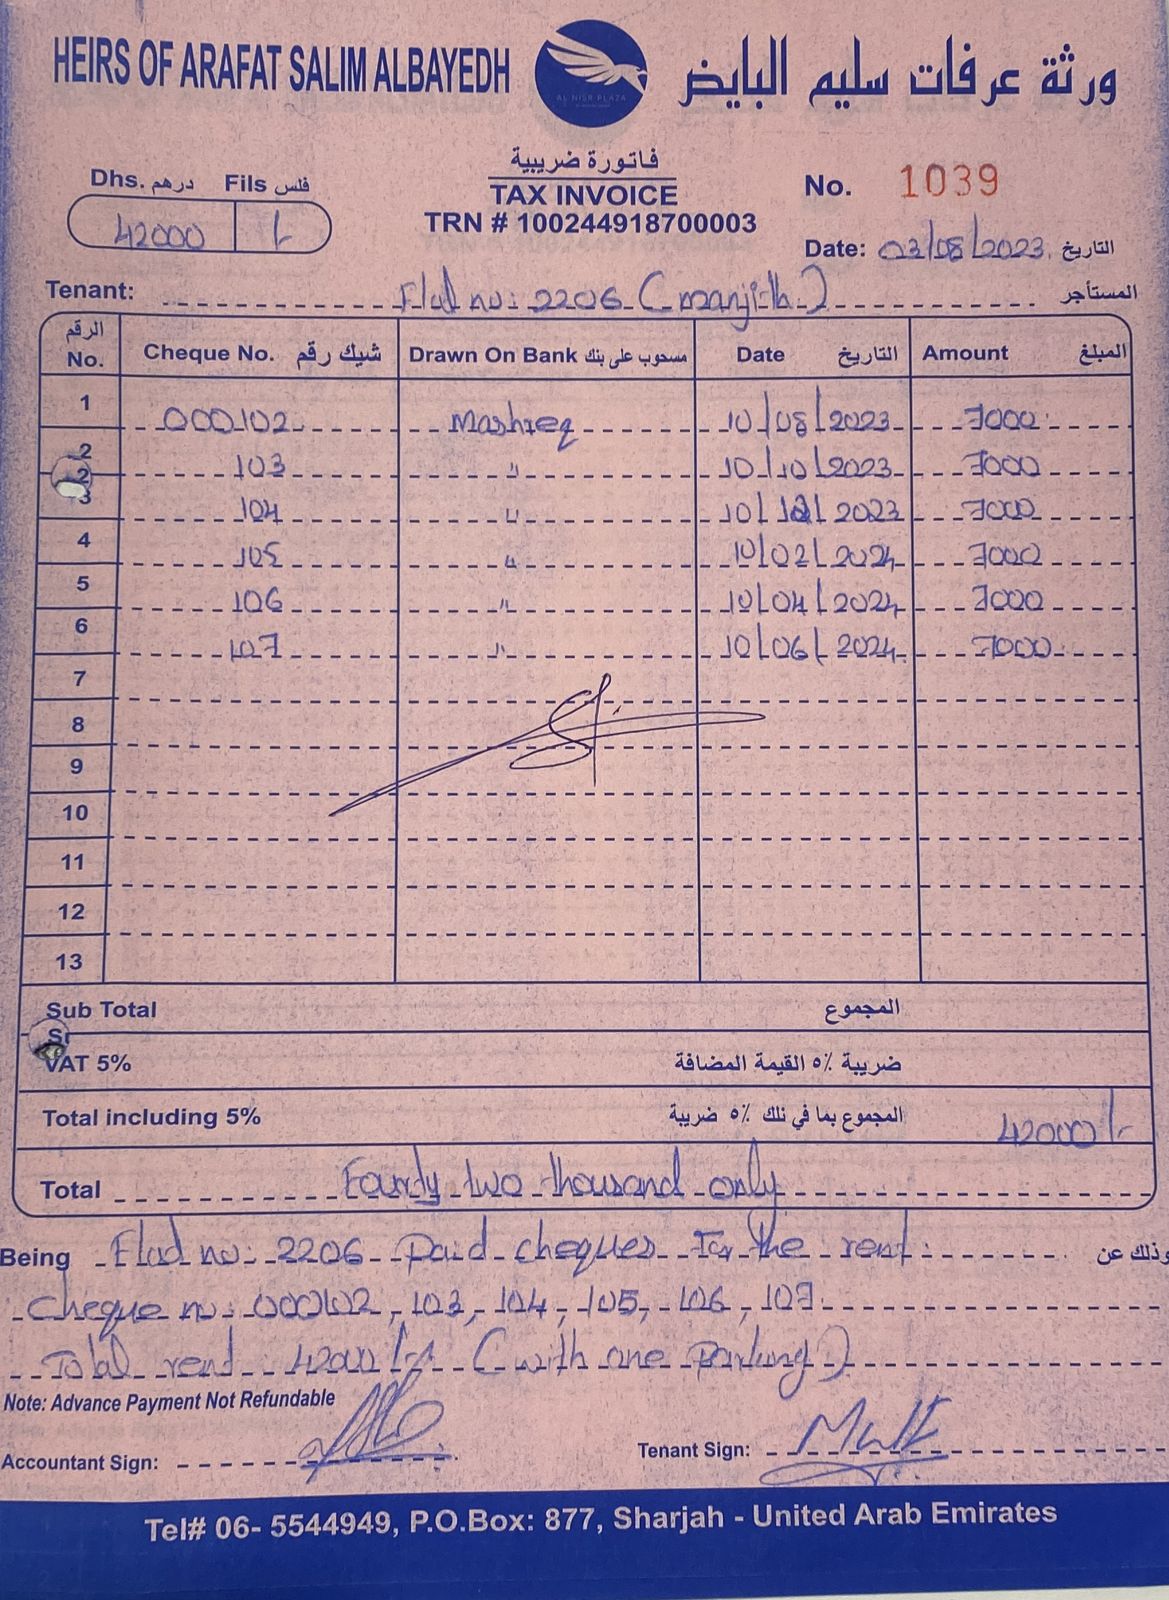 HEIRS OF ARAFAT SALIM ALBAYEDH ورثة عرفات سليم البايض
AL NISR PLAZA
فاتورة ضريبية
TAX INVOICE
TRN # 100244918700003
Dhs. درهم Fils فلس
42000 /-
No. 1039
Date: 03/08/2023 التاريخ
Tenant: Flat no: 2206 (manjith) المستأجر
الرقم No. Cheque No. شيك رقم Drawn On Bank مسحوب على بنك Date التاريخ Amount المبلغ
1 000102 Mashreq 10/08/2023 7000
2 103 " 10/10/2023 7000
3 104 " 10/12/2023 7000
4 105 " 10/02/2024 7000
5 106 " 10/04/2024 7000
6 107 " 10/06/2024 7000
7
8
9
10
11
12
13
Sub Total المجموع
VAT 5% ضريبة ٥٪ القيمة المضافة
Total including 5% المجموع بما في ذلك ٥٪ ضريبة 42000/-
Total Fourty two thousand only
Being Flat no: 2206 Paid cheques for the rent وذلك عن
Cheque no: 000102, 103, 104, 105, 106, 107
Total rent: 42000/- (with one Parking)
Note: Advance Payment Not Refundable
Accountant Sign: Tenant Sign:
Tel# 06- 5544949, P.O.Box: 877, Sharjah - United Arab Emirates